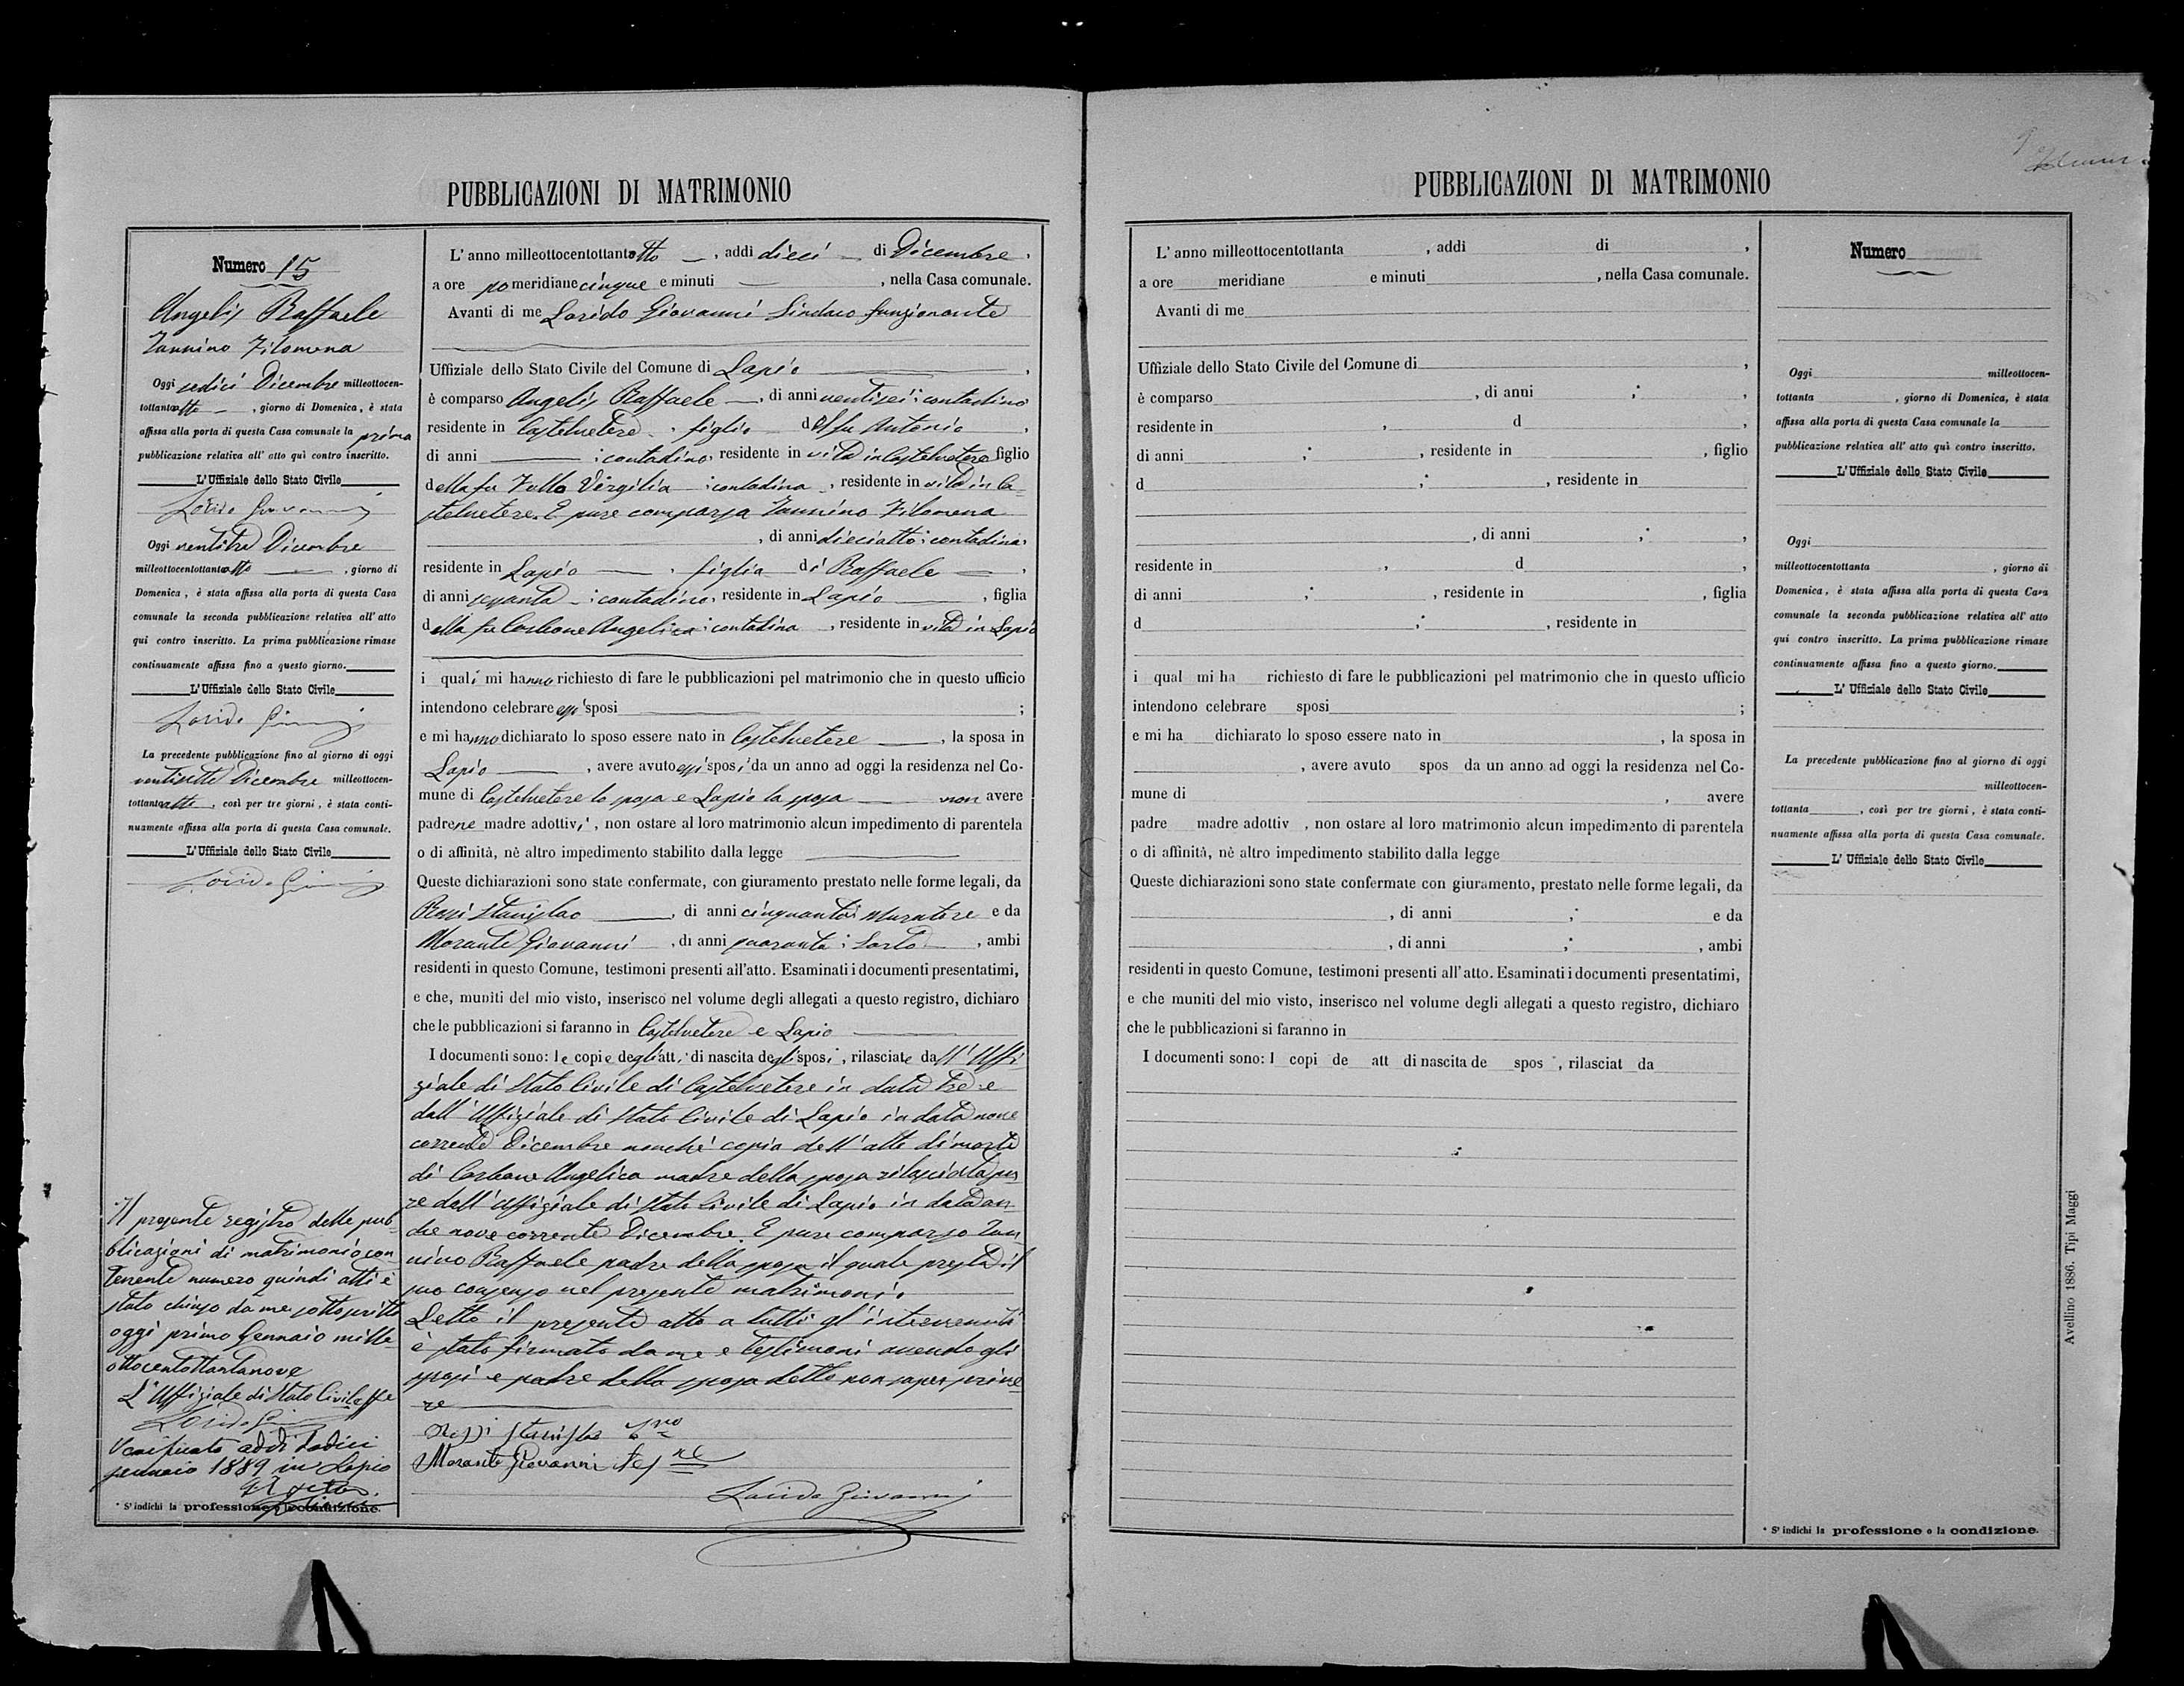 PUBBLICAZIONI DI MATRIMONIO
Numero 15
Angelis Raffaele
Iannino Filomena
Oggi sedici Dicembre milleottocen-
tottantotto, giorno di Domenica, è stata
affissa alla porta di questa Casa comunale la prima
pubblicazione relativa all' atto quì contro inscritto.
L'Uffiziale dello Stato Civile
Lorido Giovanni
Oggi ventitre Dicembre
milleottocentottantotto, giorno di
Domenica, è stata affissa alla porta di questa Casa
comunale la seconda pubblicazione relativa all' atto
qui contro inscritto. La prima pubblicazione rimase
continuamente affissa fino a questo giorno.
L'Uffiziale dello Stato Civile
Lorido Giovanni
La precedente pubblicazione fino al giorno di oggi
ventisette Dicembre milleottocen-
tottantotto, così per tre giorni, è stata conti-
nuamente affissa alla porta di questa Casa comunale.
L'Uffiziale dello Stato Civile
Lorido Giovanni
Il presente registro delle pub-
blicazioni di matrimonio con
tenente numero quindi atti è
stato chiuso da me sottoscritto
oggi primo Gennaio mille-
ottocentottantanove
L'Uffiziale di Stato Civile ff
Lorido Giovanni
Verificato addì dodici
gennaio 1889 in Lapio
* S' indichi la professione o la condizione.
L' anno milleottocentottantotto, addì dieci di Dicembre,
a ore pomeridiane cinque e minuti, nella Casa comunale.
Avanti di me Lorido Giovanni Sindaco funzionante
Uffiziale dello Stato Civile del Comune di Lapio,
è comparso Angelis Raffaele, di anni ventisei; contadino
residente in Castelvetere, figlio del fu Antonio,
di anni ; contadino, residente in vita in Castelvetere figlio
della fu Tullo Virgilia; contadina, residente in vita in Ca-
stelvetere. E pure comparsa Iannino Filomena
, di anni dieciotto; contadina,
residente in Lapio, figlia di Raffaele,
di anni sessanta; contadino, residente in Lapio, figlia
della fu Carbone Angelica; contadina, residente in vita in Lapio
i quali mi hanno richiesto di fare le pubblicazioni pel matrimonio che in questo ufficio
intendono celebrare essi sposi;
e mi hanno dichiarato lo sposo essere nato in Castelvetere, la sposa in
Lapio, avere avuto essi sposi da un anno ad oggi la residenza nel Co-
mune di Castelvetere lo sposo e Lapio la sposa non avere
padre ne madre adottivi, non ostare al loro matrimonio alcun impedimento di parentela
o di affinità, nè altro impedimento stabilito dalla legge
Queste dichiarazioni sono state confermate, con giuramento prestato nelle forme legali, da
Rossi Stanislao, di anni cinquanta; Muratore e da
Morante Giovanni, di anni quaranta; Sarto, ambi
residenti in questo Comune, testimoni presenti all'atto. Esaminati i documenti presentatimi,
e che, muniti del mio visto, inserisco nel volume degli allegati a questo registro, dichiaro
che le pubblicazioni si faranno in Castelvetere e Lapio
I documenti sono: le copie degli atti di nascita degli sposi, rilasciate dall'Uffi
ziale di Stato Civile di Castelvetere in data tre e
dall'Uffiziale di Stato Civile di Lapio in data nove
corrente Dicembre nonché copia dell'atto di morte
di Carbone Angelica madre della sposa rilasciata pu
re dall'Uffiziale di Stato Civile di Lapio in data an-
che nove corrente Dicembre. E pure comparso Ian
nino Raffaele padre della sposa il quale presta il
suo consenso nel presente matrimonio.
Letto il presente atto a tutti gl'intervenuti
è stato firmato da me e testimoni avendo gli
sposi e padre della sposa detto non saper scrive-
re
Rossi Stanislao
Morante Giovanni
Lorido Giovanni
PUBBLICAZIONI DI MATRIMONIO
L' anno milleottocentottanta , addì di ,
a ore meridiane e minuti , nella Casa comunale.
Avanti di me
Uffiziale dello Stato Civile del Comune di ,
è comparso , di anni ; ,
residente in , d ,
di anni ; , residente in , figlio
d ; , residente in
, di anni ; ,
residente in , d ,
di anni ; , residente in , figlia
d ; , residente in
i qual mi ha richiesto di fare le pubblicazioni pel matrimonio che in questo ufficio
intendono celebrare sposi ;
e mi ha dichiarato lo sposo essere nato in , la sposa in
, avere avuto spos da un anno ad oggi la residenza nel Co-
mune di , avere
padre madre adottiv , non ostare al loro matrimonio alcun impedimento di parentela
o di affinità, nè altro impedimento stabilito dalla legge
Queste dichiarazioni sono state confermate con giuramento, prestato nelle forme legali, da
, di anni ; e da
, di anni ; , ambi
residenti in questo Comune, testimoni presenti all' atto. Esaminati i documenti presentatimi,
e che muniti del mio visto, inserisco nel volume degli allegati a questo registro, dichiaro
che le pubblicazioni si faranno in
I documenti sono: l copi de att di nascita de spos , rilasciat da
Numero
Oggi milleottocen-
tottanta , giorno di Domenica, è stata
affissa alla porta di questa Casa comunale la
pubblicazione relativa all' atto quì contro inscritto.
L'Uffiziale dello Stato Civile
Oggi
milleottocentottanta , giorno di
Domenica, è stata affissa alla porta di questa Casa
comunale la seconda pubblicazione relativa all' atto
qui contro inscritto. La prima pubblicazione rimase
continuamente affissa fino a questo giorno.
L' Uffiziale dello Stato Civile
La precedente pubblicazione fino al giorno di oggi
milleottocen-
tottanta , così per tre giorni, è stata conti-
nuamente affissa alla porta di questa Casa comunale.
L' Uffiziale dello Stato Civile
* S' indichi la professione o la condizione.
Avellino 1886. Tipi Maggi